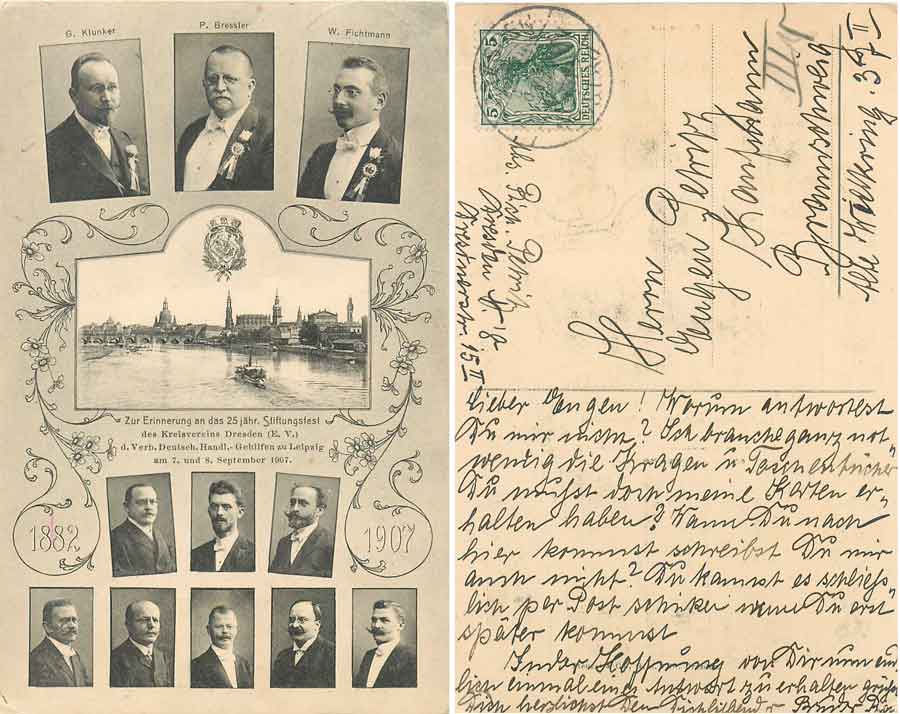 G. Klunker
P. Bressler
W. Fichtmann
Zur Erinnerung an das 25 jähr. Stiftungsfest
des Kreisvereins Dresden (E. V.)
d. Verb. Deutsch. Handl.- Gehilfen zu Leipzig
am 7. und 8. September 1907.
1882
1907
5
5
DEUTSCHES REICH
Abs. Rich. Petritz
Dresden A 18
15 II
Herrn
Eugen Petritz
Kaufmann
Braunschweig
Alte Wallring. 37 II
Lieber Eugen! Warum antwortest
Du mir nicht? Ich brauche ganz not
wendig die Kragen u Taschentücher
Du mußt doch meine Karten er-
halten haben? Wann Du nach
hier kommst schreibst Du mir
auch nicht? Du kannst es schließ
lich per Post schicken wenn Du erst
später kommst
In der Hoffnung von Dir nun end
lich einmal eine Antwort zu erhalten grüßt
Dich herzlichst Dein Dich liebender Bruder